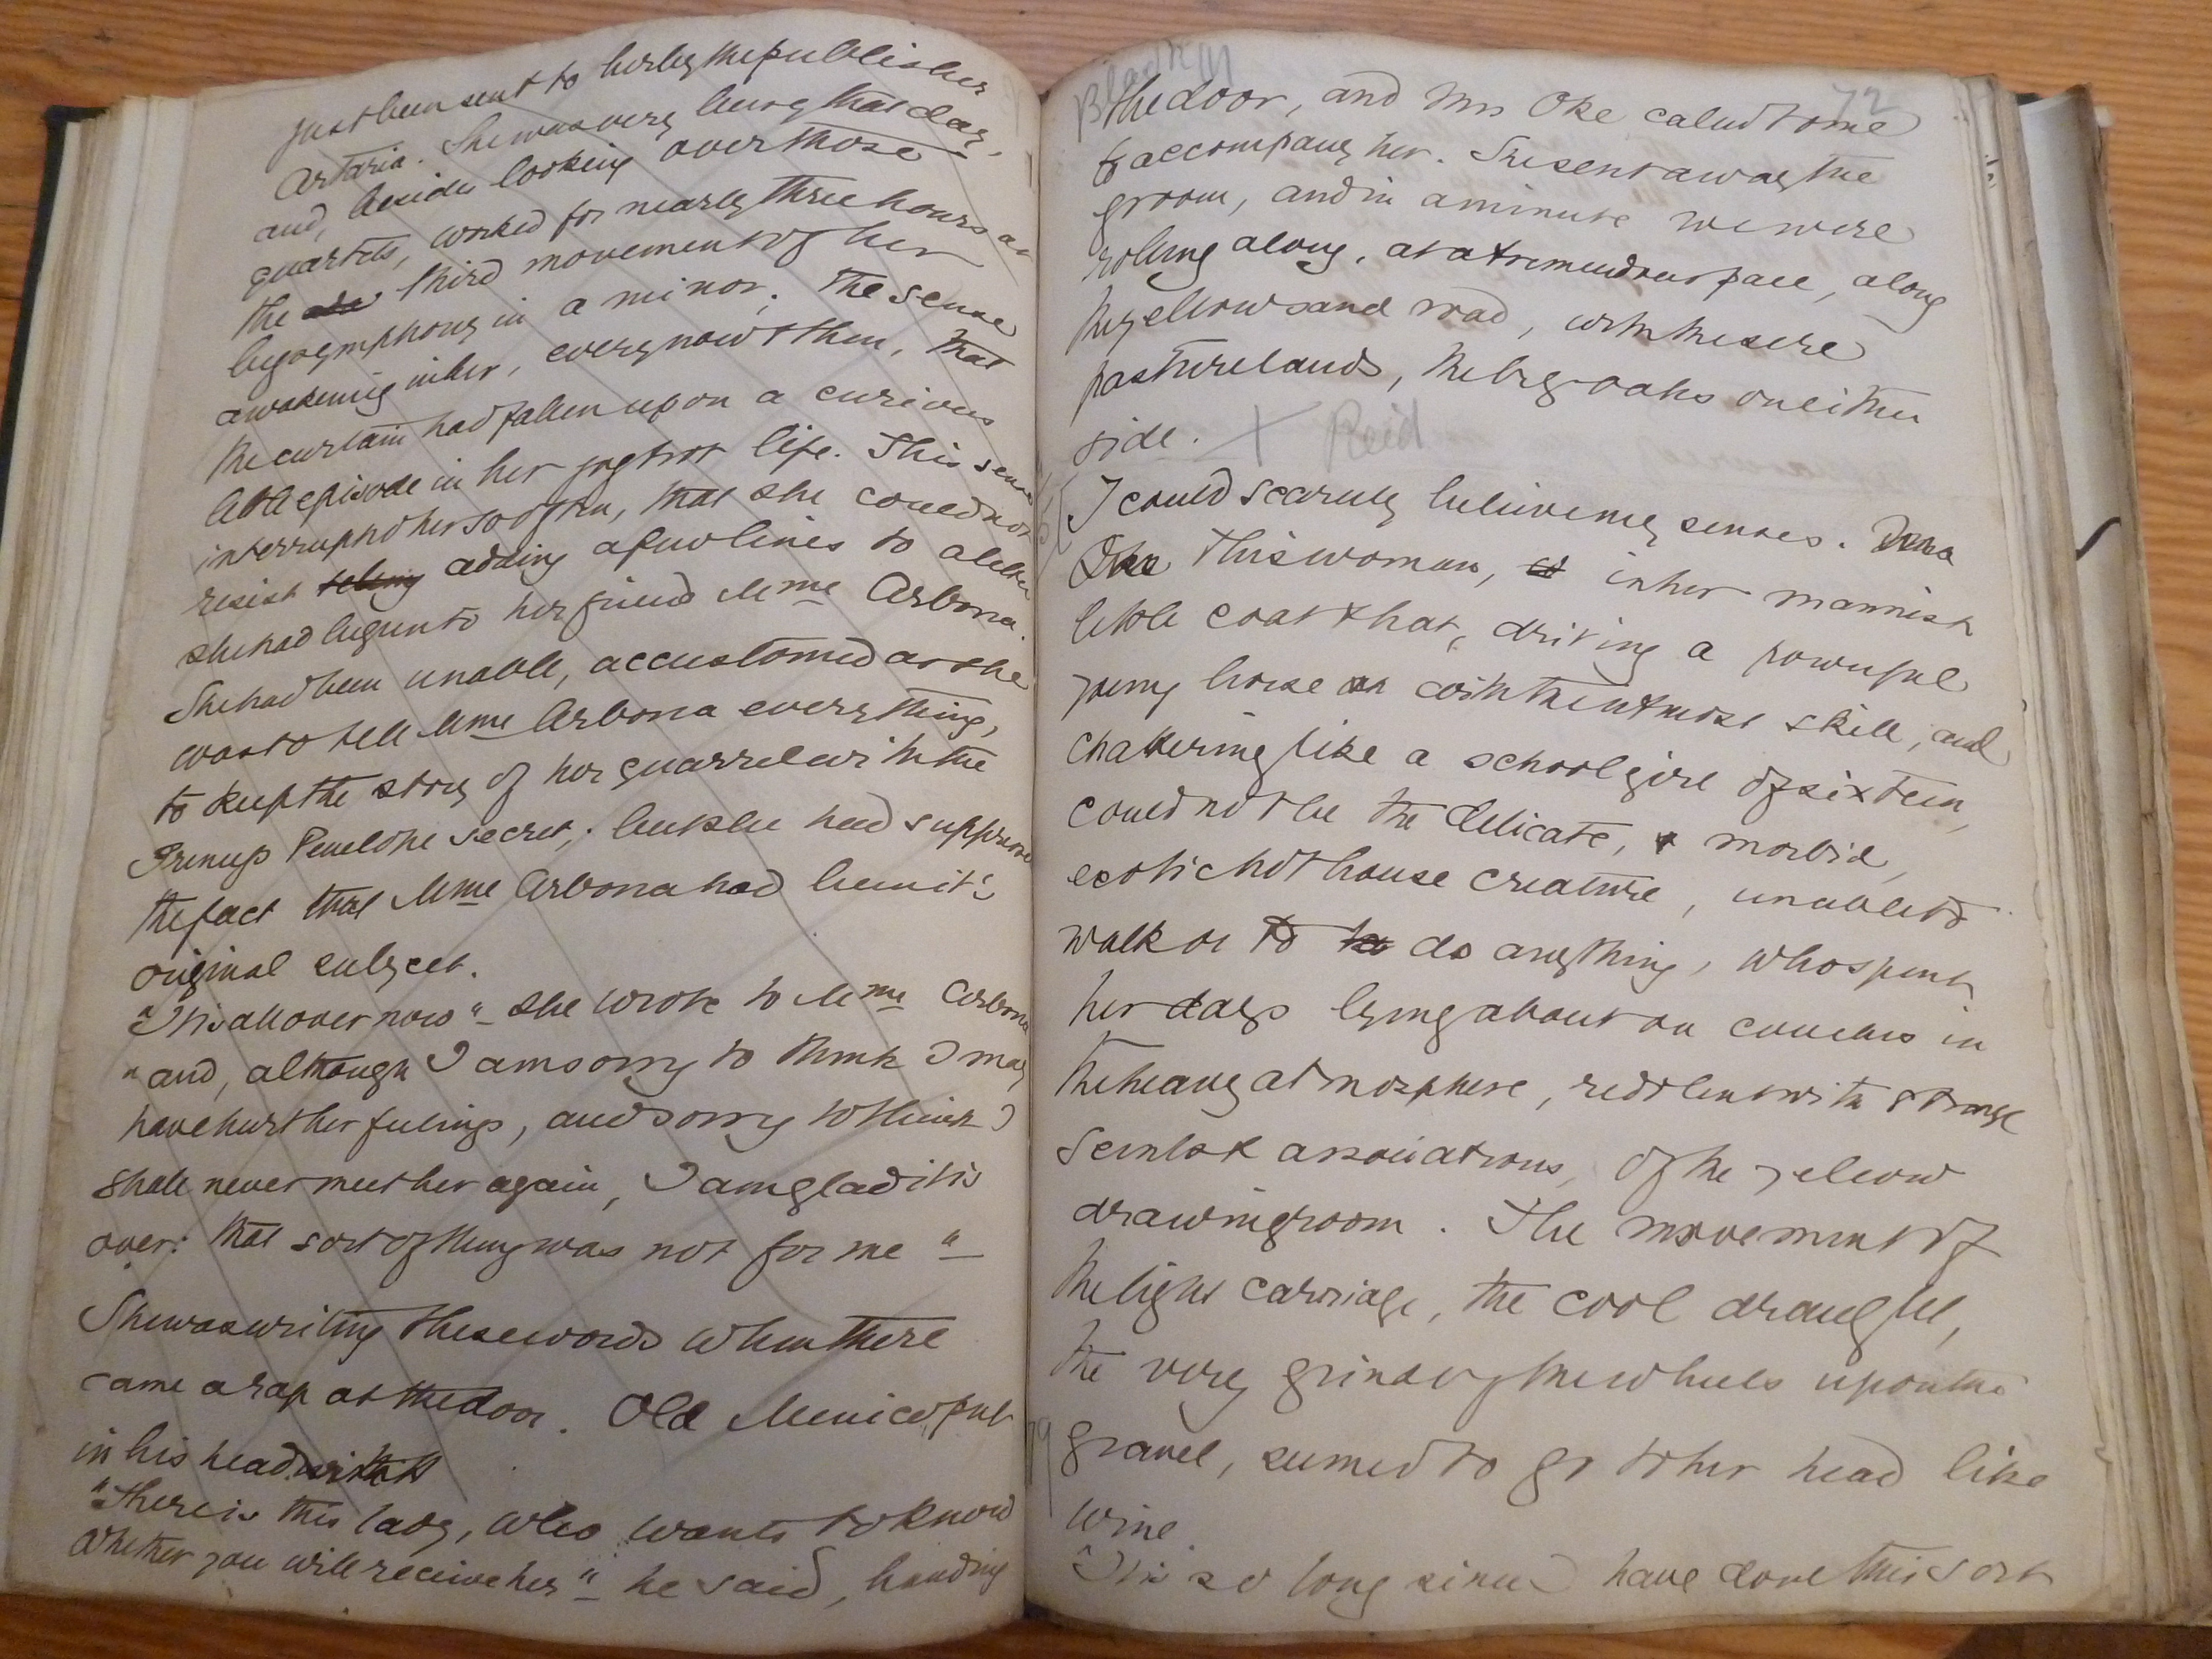 just been sent to her by the publisher
Artaria. She was very busy that day,
and, beside looking over those
quartets, worked for nearly three hours at
the third movement of her
symphony in a minor. The sense
awakening in her, every now & then, that
the curtain had fallen upon a curious
little episode in her jogtrot life. This sense
interrupted her so often, that she could not
resist adding a few lines to a letter
she had begun to her friend Mme Arbona.
She had been unable, accustomed as she
was to tell Mme Arbona everything,
to keep the story of her quarrel with the
Penelope secret; but she had suppressed
the fact that Mme Arbona had been it's
original subject.
"It is all over now" she wrote to Mme Arbona
"and, although I am sorry to think I may
have hurt her feelings, and sorry to think I
shall never meet her again, I am glad it is
over: that sort of thing was not for me"
She was writing these words when there
came a rap at the door. Old Menico put
in his head with
"There is this lady, who wants to know
whether you will receive her" he said, handing
72
the door, and Mrs Oke called to me
to accompany her. She sent away the
groom, and in a minute we were
rolling along, at a tremendous pace, along
the yellow sand road, with the sere
pasturelands, the big oaks on either
side. X Reid
I could scarcely believe my senses.
This woman, in her mannish
little coat & hat, driving a powerful
young horse with the utmost skill, and
chattering like a school girl of sixteen,
could not be the delicate, morbid,
exotic hothouse creature, unable to
walk or to do anything, who spent
her days lying about on couches in
the heavy atmosphere, redolent with strange
scents & associations, of the yellow
drawingroom. The movement of
the light carriage, the cool draught,
the very grind of the wheels upon the
gravel, seemed to go to her head like
wine.
"It is so long since I have done this sort